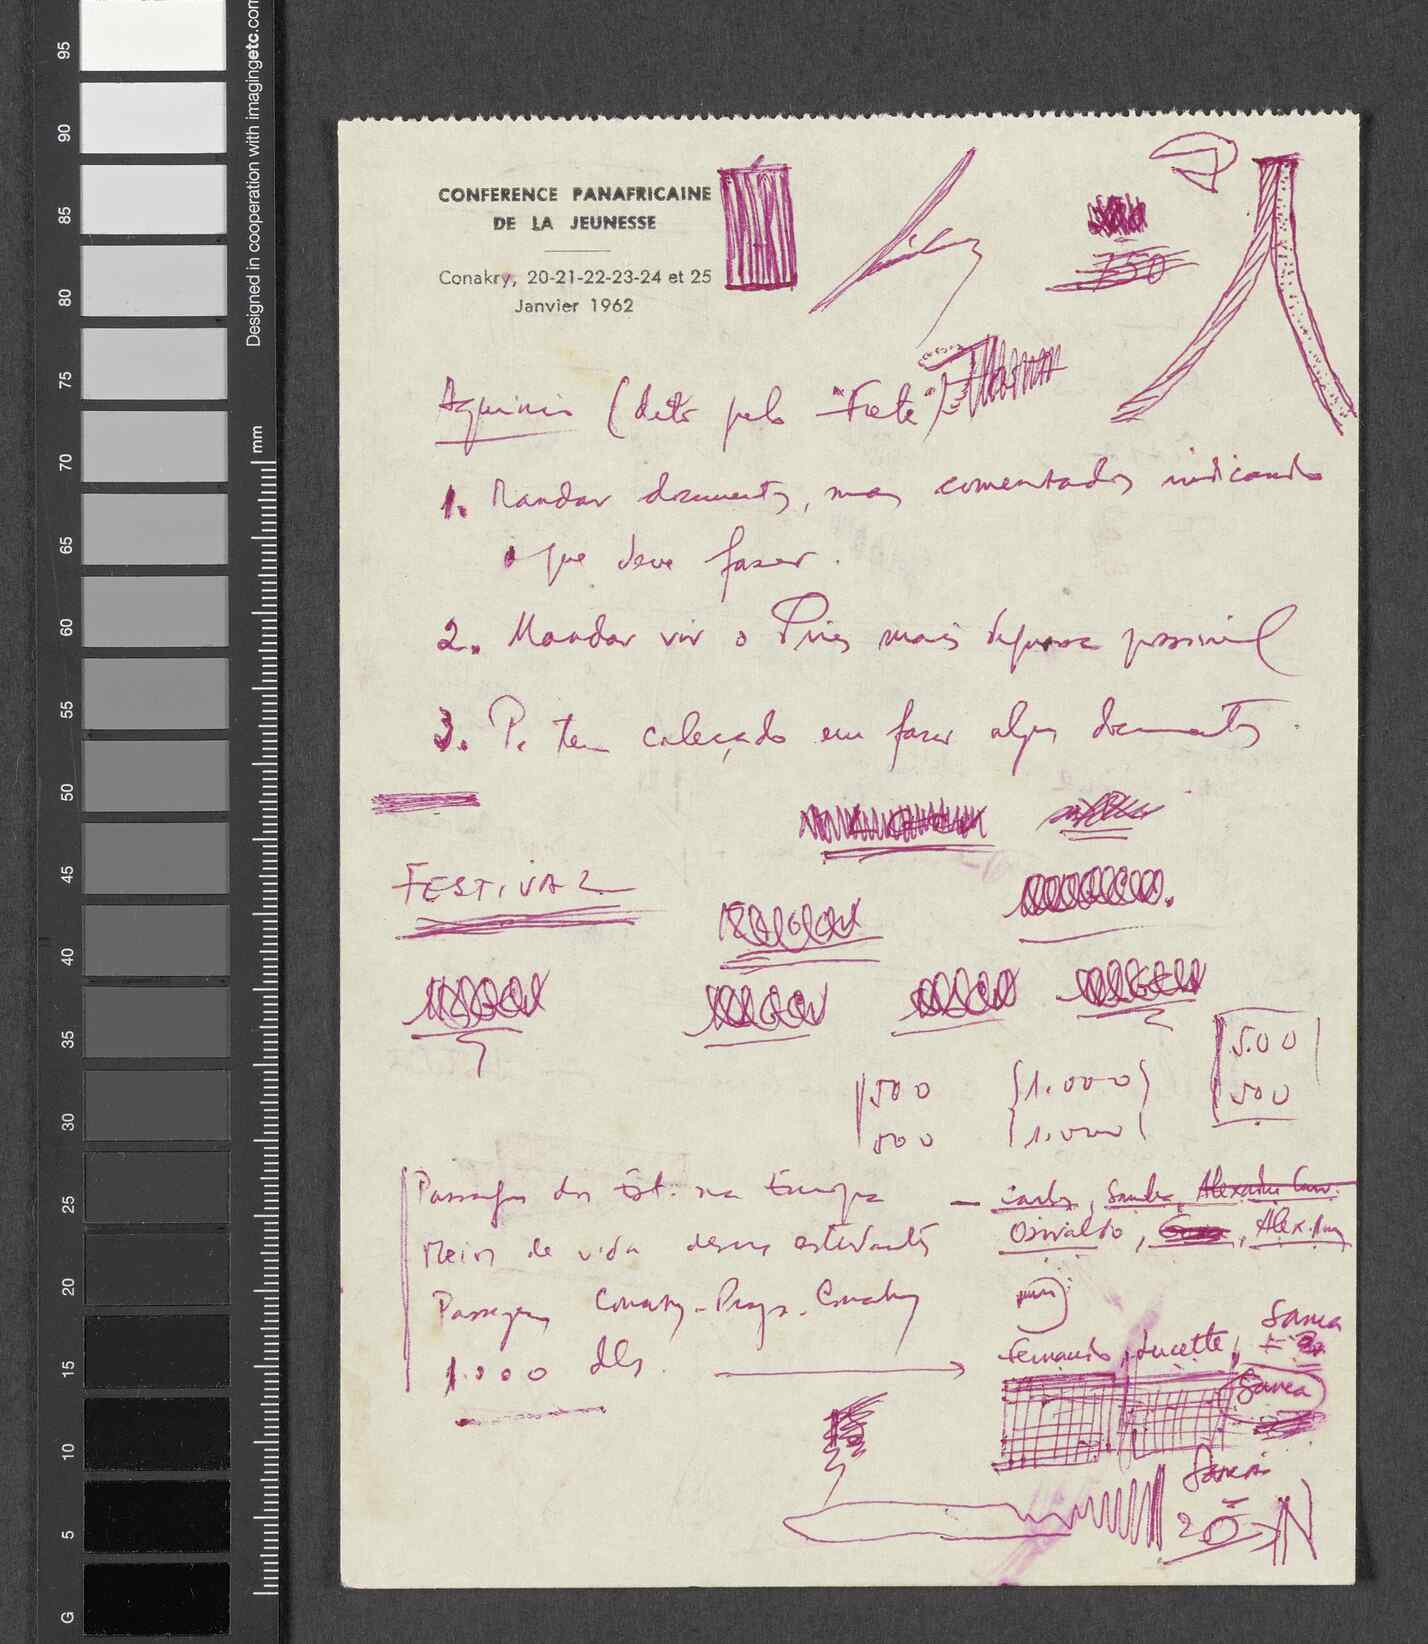 CONFERENCE PANAFRICAINE
DE LA JEUNESSE
Conakry, 20-21-22-23-24 et 25
Janvier 1962
750
(dito pelo "Fefe")
1. Mandar documentos, mas comentados indicando
o que deve fazer.
2. Mandar vir o Pires mais depressa possivel
3. P. tem colecção em fazer alguns documentos.
FESTIVAL
500
500
1.000
1.000
500
500
Passagens dos Est. na Europa — Carlos, Sandra, Alexandre
Meios de vida desses estudantes Osvaldo, Alex.
Passagens Conakry - Praga - Conakry
Sanca
1.000 dls. Fernando, Lucette,
Sanca
Sanca
Designed in cooperation with imagingetc.com
mm
95
90
85
80
75
70
65
60
55
50
45
40
35
30
25
20
15
10
5
G